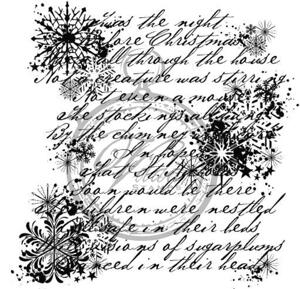 'Twas the night
fore Christmas
through the house
Not a creature was stirring
Not even a mou
he stockings all hung
By the chimney
In hope
that St. Nicholas
Soon would be there
children were nestled
safe in their beds
visions of sugarplums
nced in their head